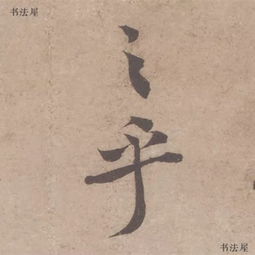 书法屋
之乎
书法屋